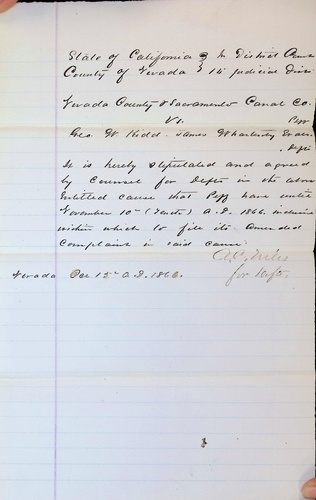 State of California } In District Court
County of Nevada } 14 Judicial Dist
Nevada County & Sacramento Canal Co.
Vs. Plff
Geo. W. Kidd. James Whartenby et als.
Defts
It is hereby stipulated and agreed
by Counsel for Defts in the above
Entitled cause that Plff have until
November 10th (Tenth) A.D. 1866. inclusive
within which to file its amended
Complaint in said cause.
for Defts.
Nevada Oct 15th A.D. 1866.